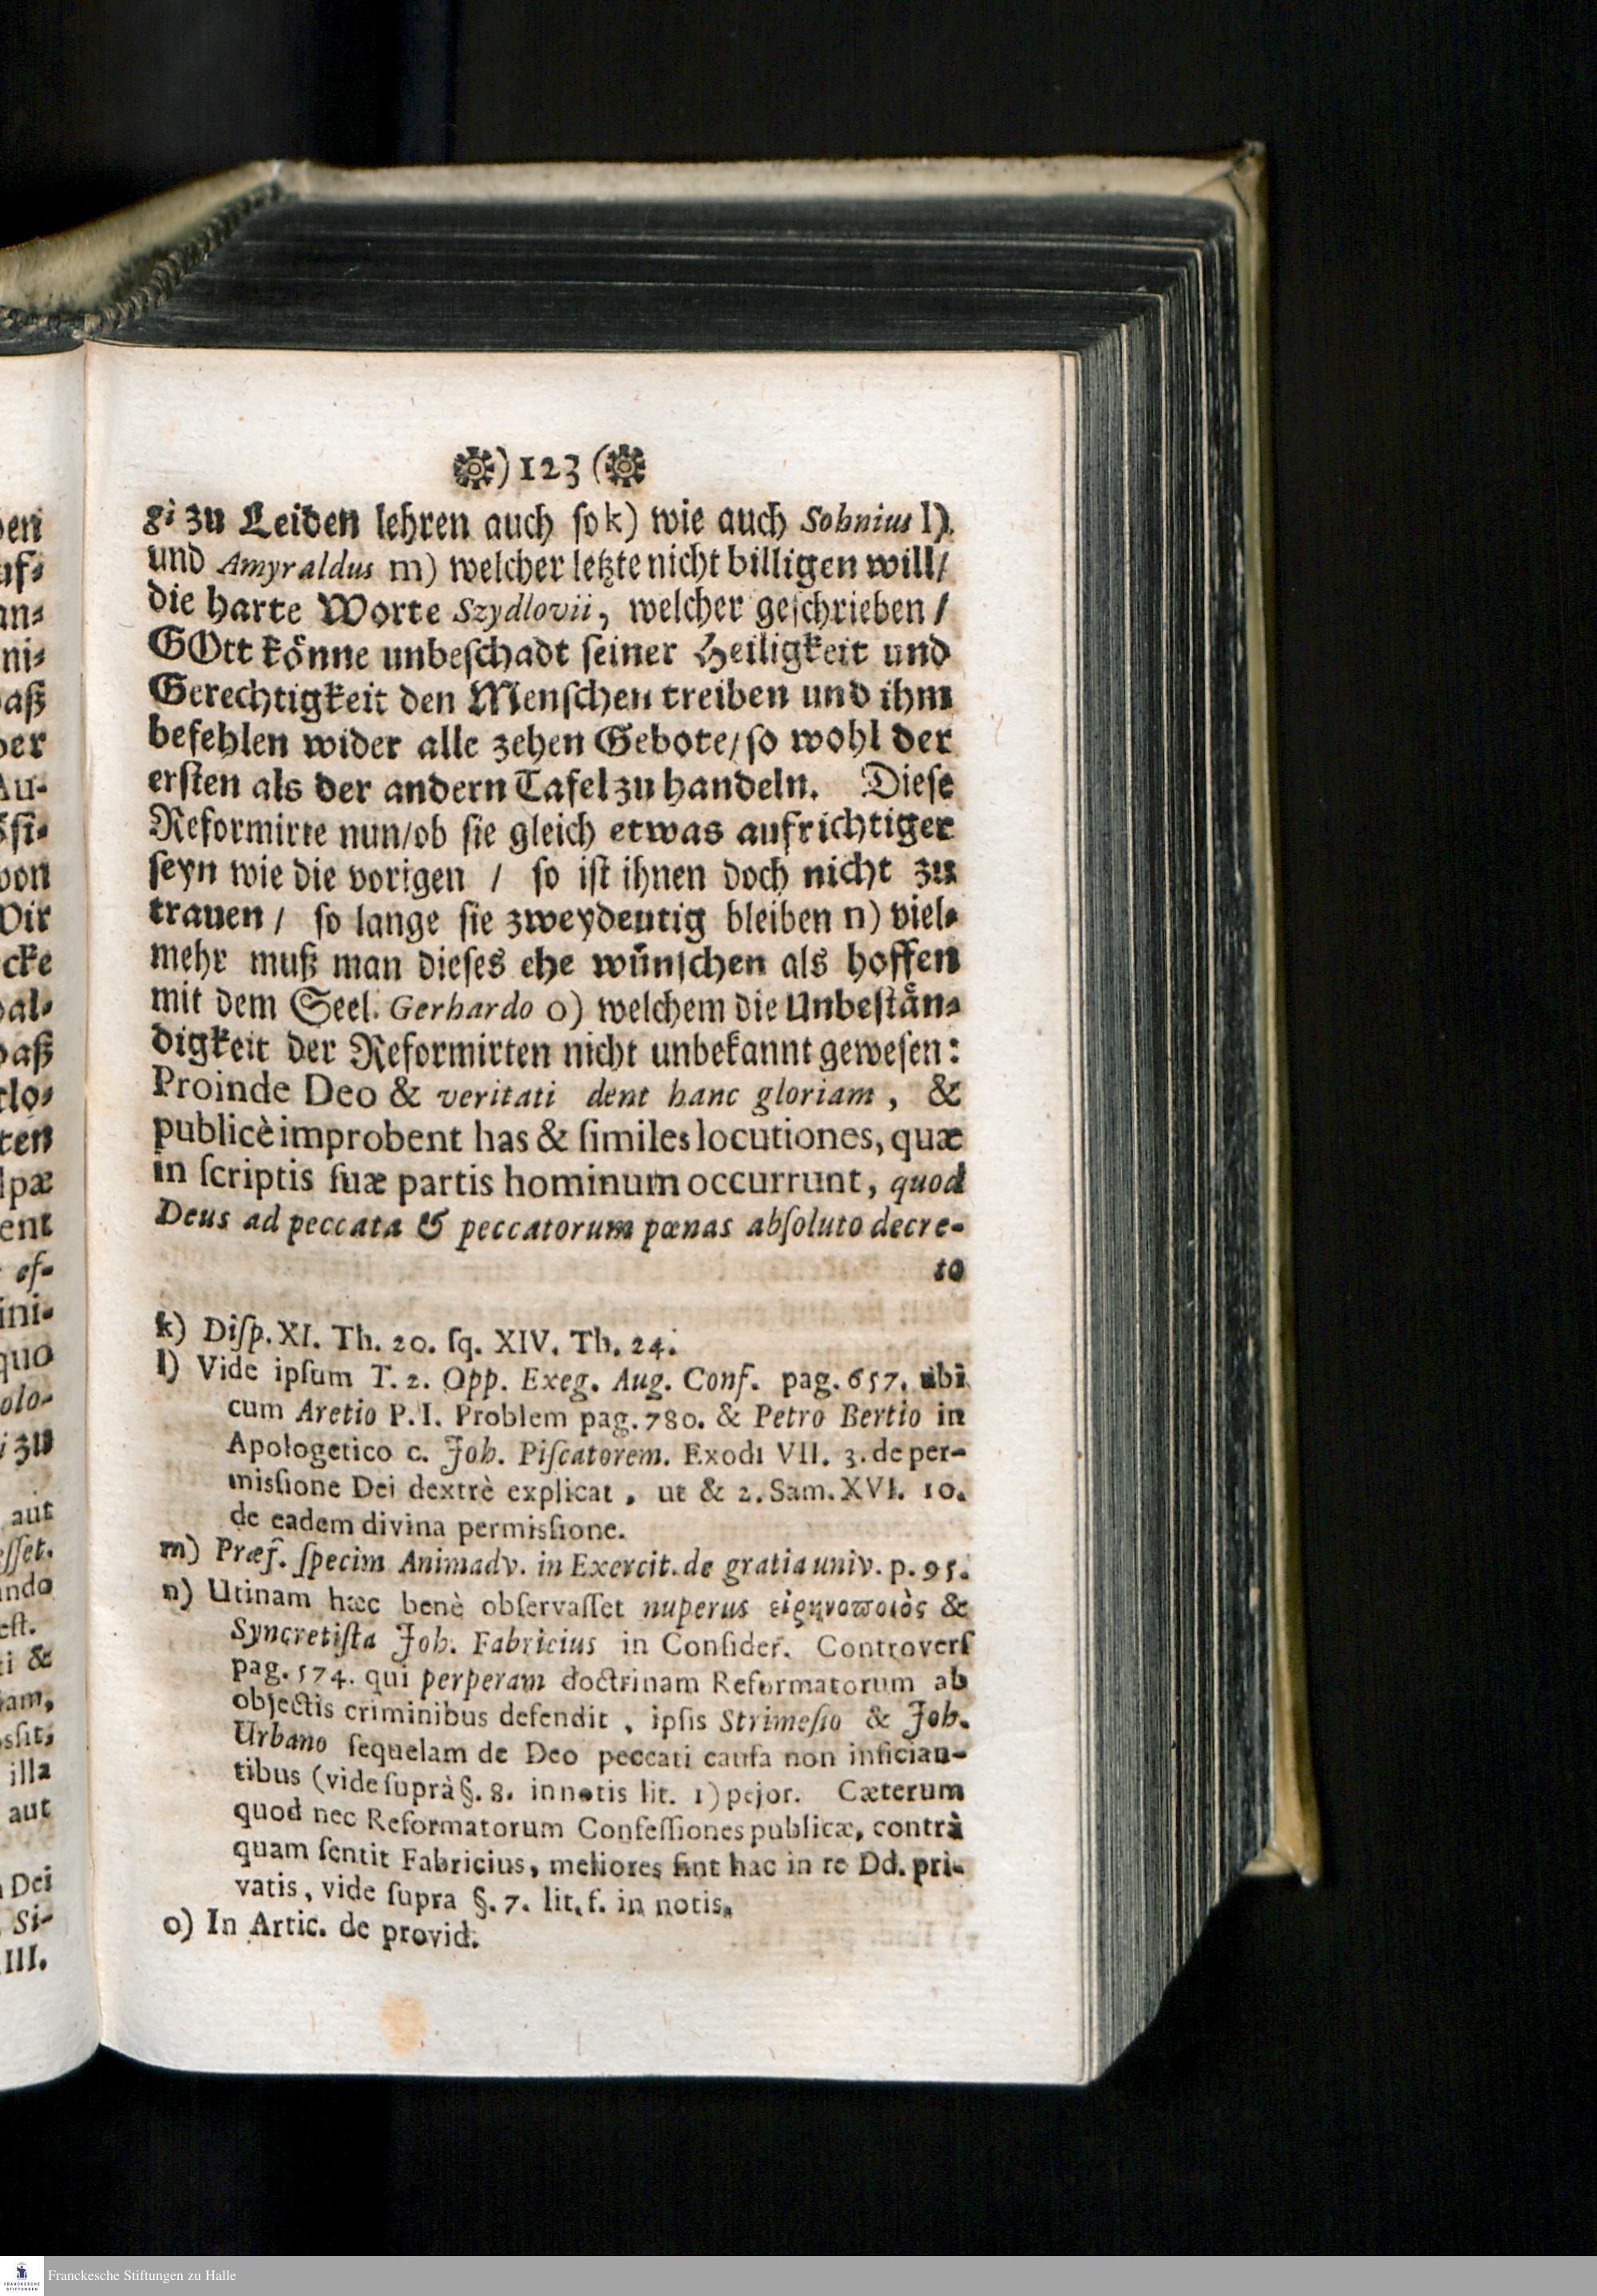 ) 123 (
gi zu Leiden lehren auch ſo k) wie auch Sohnius l)
und Amyraldus m) welcher letzte nicht billigen will/
die harte Worte Szydlovii, welcher geſchrieben /
GOtt könne unbeſchadt ſeiner Heiligkeit und
Gerechtigkeit den Menſchen treiben und ihm
befehlen wider alle zehen Gebote/ ſo wohl der
erſten als der andern Tafel zu handeln. Dieſe
Reformirte nun/ ob ſie gleich etwas aufrichtiger
ſeyn wie die vorigen / ſo iſt ihnen doch nicht zu
trauen / ſo lange ſie zweydeutig bleiben n) viel-
mehr muß man dieſes ehe wünſchen als hoffen
mit dem Seel. Gerhardo o) welchem die Unbeſtän-
digkeit der Reformirten nicht unbekannt geweſen:
Proinde Deo & veritati dent hanc gloriam, &
publicè improbent has & ſimiles locutiones, quæ
in ſcriptis ſuæ partis hominum occurrunt, quod
Deus ad peccata & peccatorum pœnas abſoluto decre-
to
k) Diſp. XI. Th. 20. ſq. XIV. Th. 24.
l) Vide ipſum T. 2. Opp. Exeg. Aug. Conf. pag. 657. ubi
cum Aretio P. I. Problem pag. 780. & Petro Bertio in
Apologetico c. Joh. Piſcatorem. Exodi VII. 3. de per-
miſſione Dei dextrè explicat, ut & 2. Sam. XVI. 10.
de eadem divina permiſſione.
m) Præf. ſpecim Animadv. in Exercit. de gratia univ. p. 95.
n) Utinam hæc benè obſervaſſet nuperus εἰρηνοποιὸς &
Syncretiſta Joh. Fabricius in Conſider. Controverſ
pag. 574. qui perperam doctrinam Reformatorum ab
objectis criminibus defendit, ipſis Strimeſio & Joh.
Urbano ſequelam de Deo peccati cauſa non infician-
tibus (vide ſuprà §. 8. in notis lit. 1) pejor. Cæterum
quod nec Reformatorum Confeſſiones publicæ, contrà
quam ſentit Fabricius, meliores ſint hac in re Dd. pri-
vatis, vide ſupra §. 7. lit. f. in notis.
o) In Artic. de provid.
Franckesche Stiftungen zu Halle